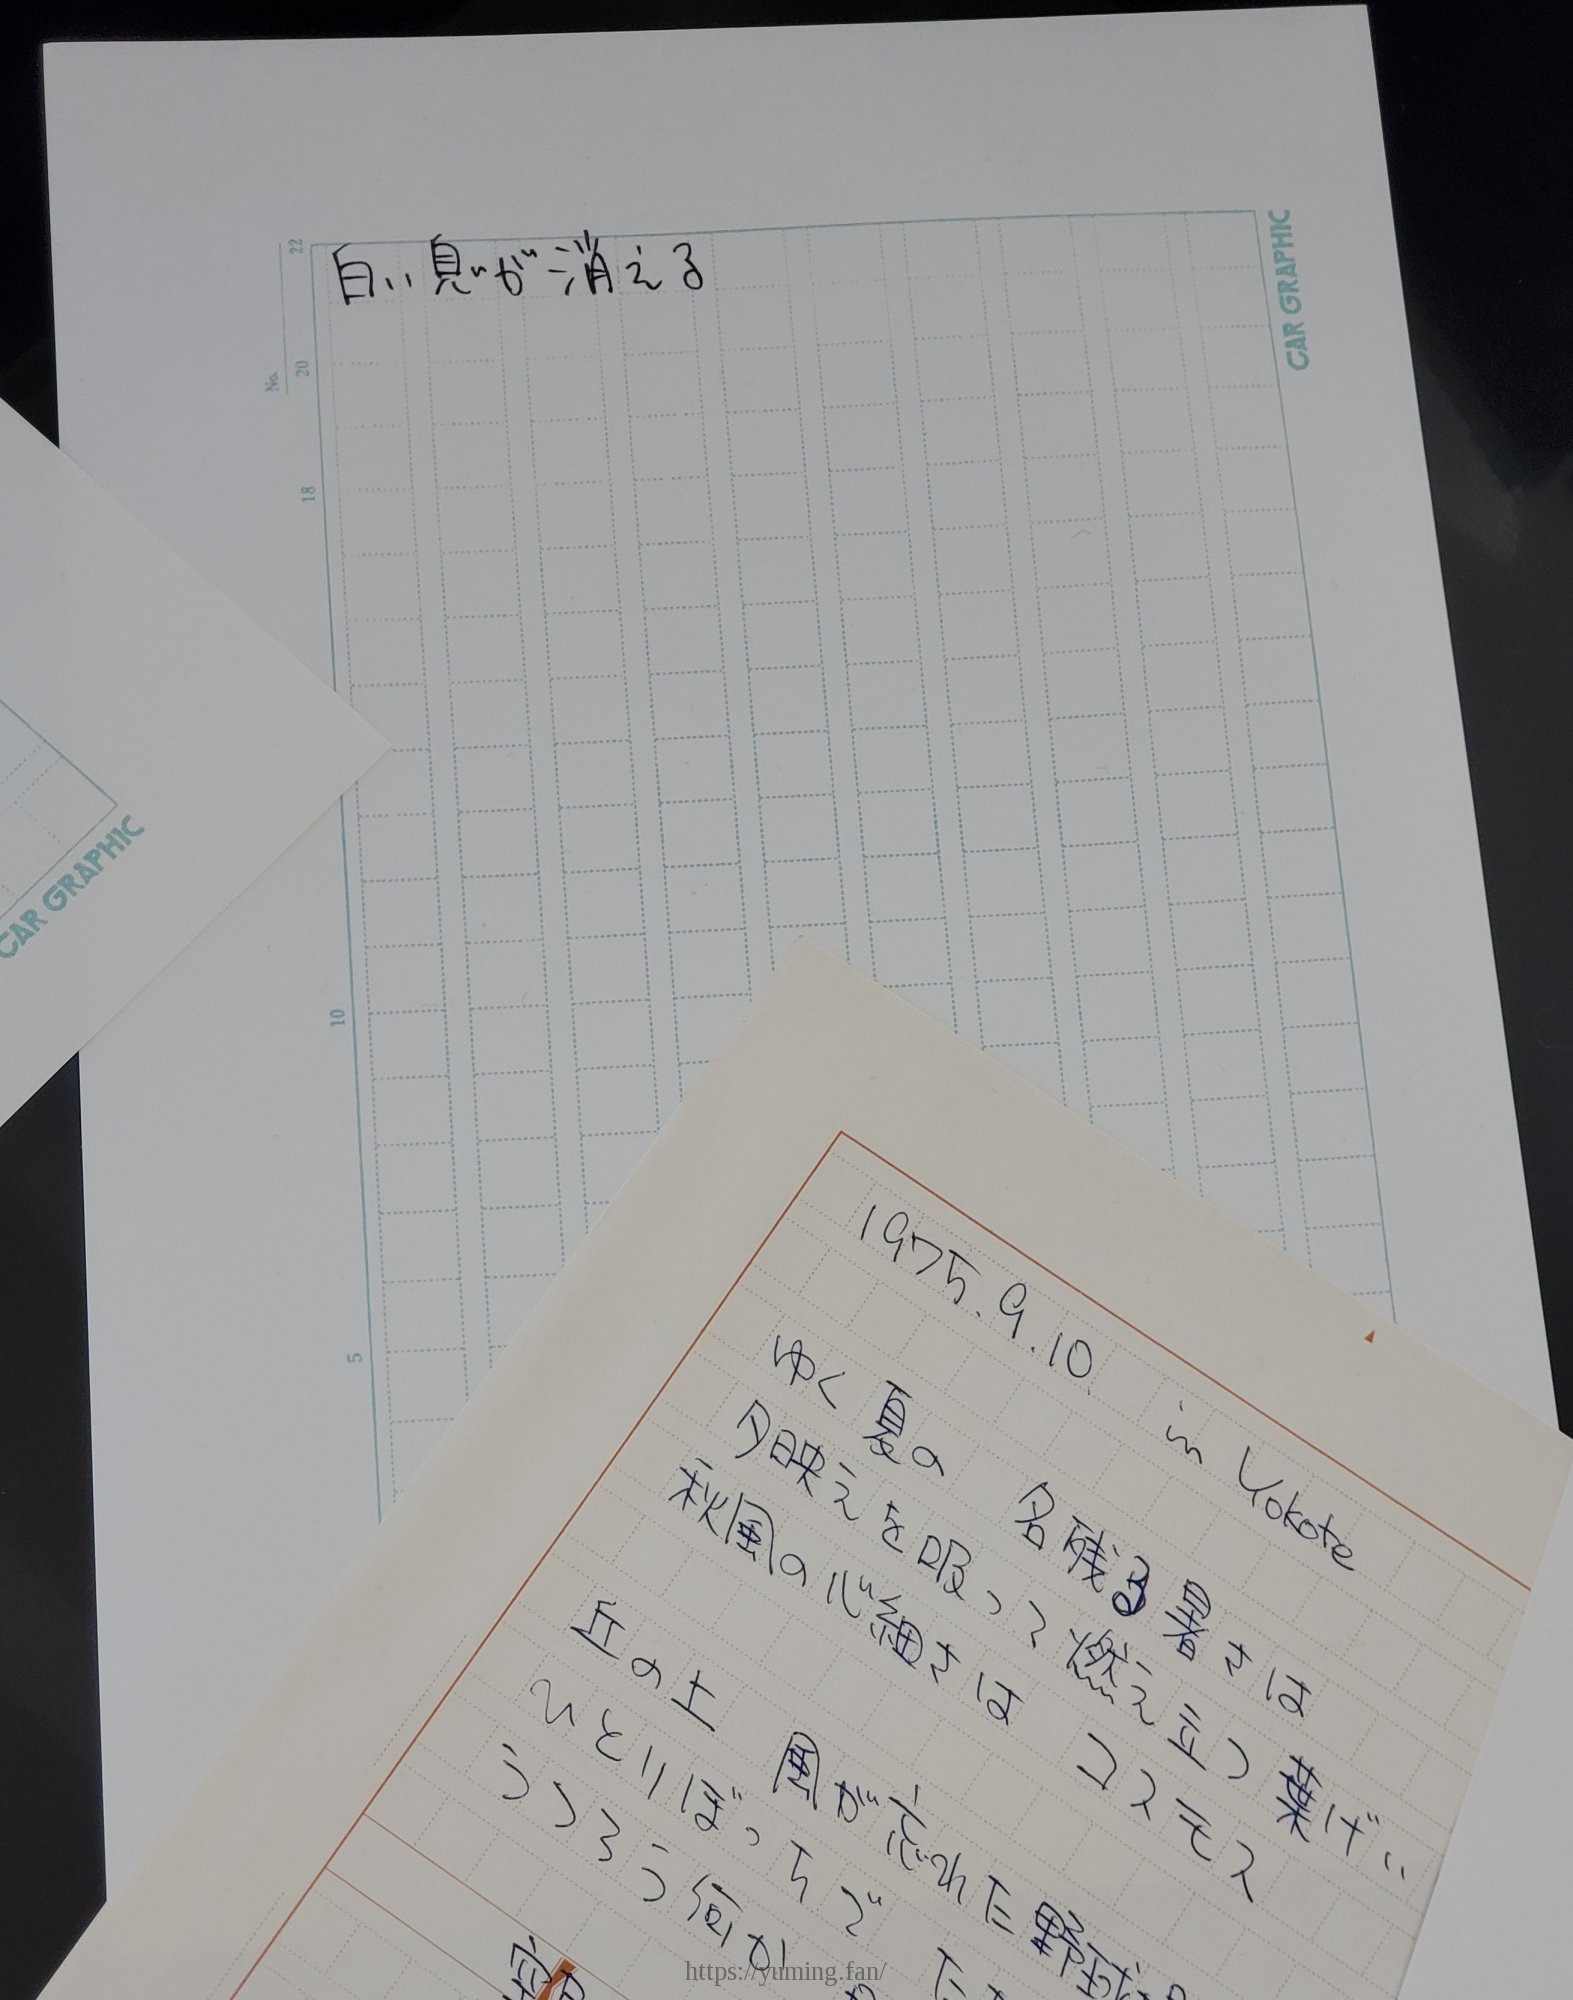 白い息が消える
CAR GRAPHIC
No.
22
20
18
10
5
CAR GRAPHIC
1975.9.10 in Yokote
ゆく夏の 名残る暑さは
夕映えを吸って燃え立つ葉げい
秋風の心細さは コスモス
丘の上 風が忘れた野
ひとりぼっちで
うつろう何か
https://yuming.fan/